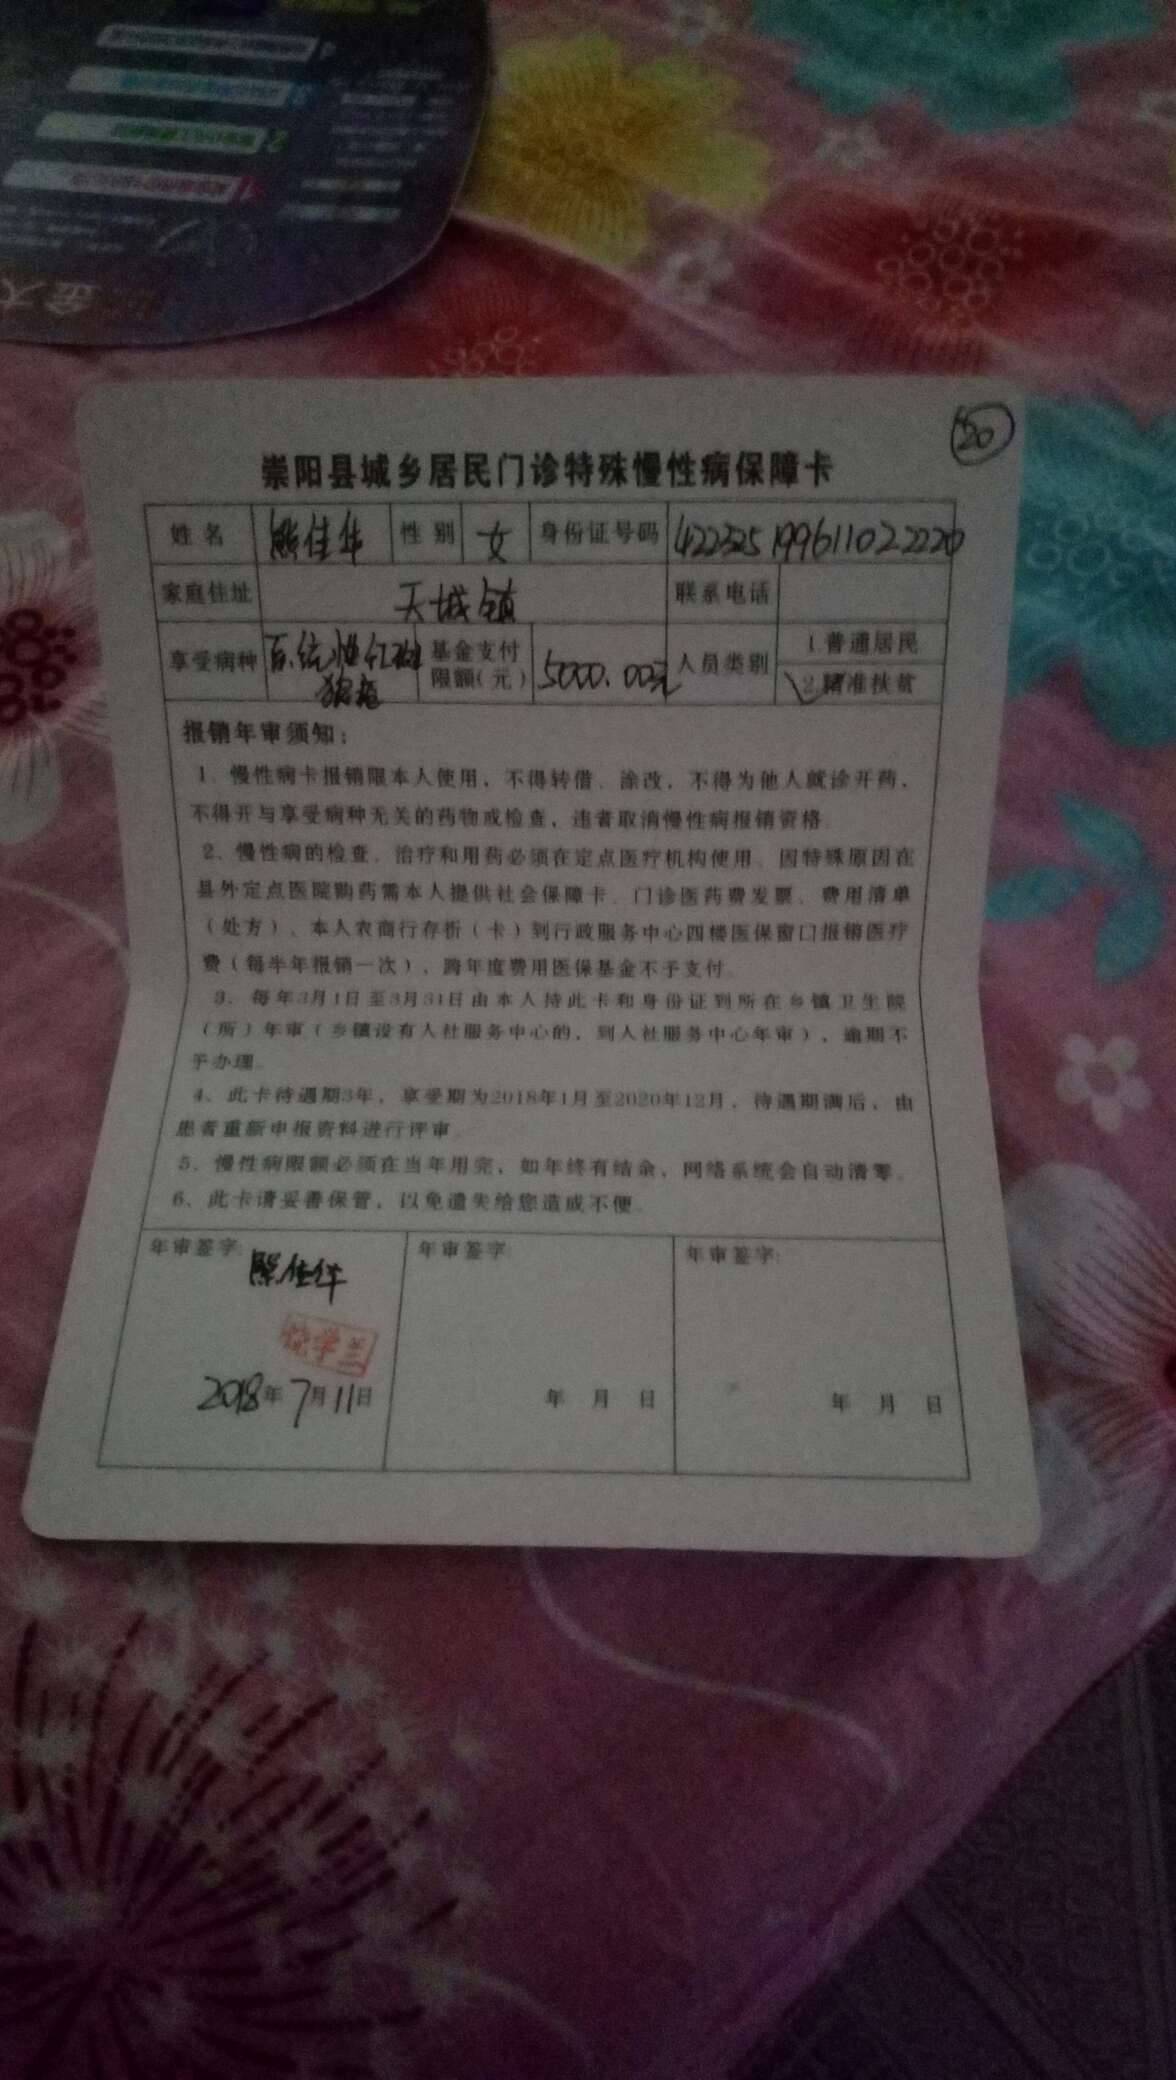 20
崇阳县城乡居民门诊特殊慢性病保障卡
姓名 熊佳华 性别 女 身份证号码 422325199611022220
家庭住址 天城镇 联系电话
享受病种 系统性红斑狼疮 基金支付限额（元） 5000.00元 人员类别 1.普通居民 2.精准扶贫
报销年审须知：
1、慢性病卡报销限本人使用，不得转借、涂改，不得为他人就诊开药，
不得开与享受病种无关的药物或检查，违者取消慢性病报销资格。
2、慢性病的检查、治疗和用药必须在定点医疗机构使用。因特殊原因在
县外定点医院购药需本人提供社会保障卡、门诊医药费发票、费用清单
（处方）、本人农商行存折（卡）到行政服务中心四楼医保窗口报销医疗
费（每半年报销一次），跨年度费用医保基金不予支付。
3、每年3月1日至3月31日由本人持此卡和身份证到所在乡镇卫生院
（所）年审（乡镇设有人社服务中心的，到人社服务中心年审），逾期不
予办理。
4、此卡待遇期3年，享受期为2018年1月至2020年12月，待遇期满后，由
患者重新申报资料进行评审。
5、慢性病限额必须在当年用完，如年终有结余，网络系统会自动清零。
6、此卡请妥善保管，以免遗失给您造成不便。
年审签字： 年审签字： 年审签字：
熊佳华
饶学兰
2018年7月11日 年 月 日 年 月 日